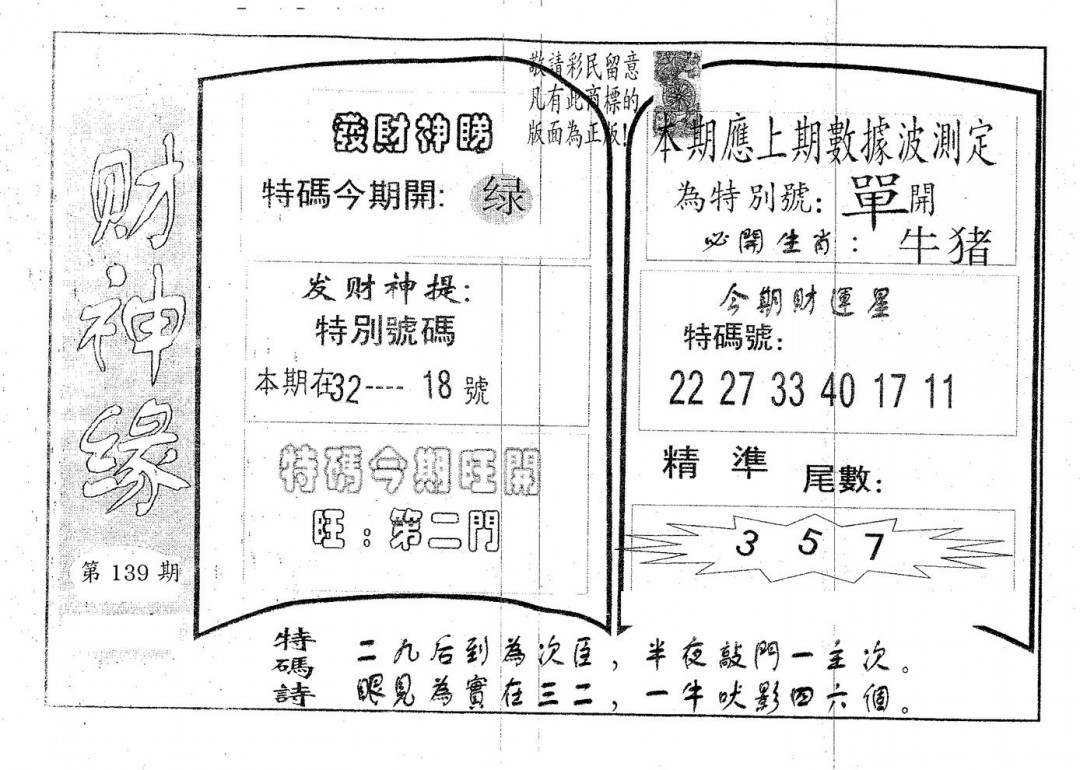 财神缘
第 139 期
敬請彩民留意
凡有此商標的
版面為正版!
發財神睇
特碼今期開: 绿
发财神提:
特別號碼
本期在32---- 18 號
特碼今期旺開
旺:第二門
本期應上期數據波測定
為特別號: 單開
必開生肖: 牛猪
今期財運星
特碼號:
22 27 33 40 17 11
精 準 尾數:
3 5 7
特碼詩
二九后到為次臣,半夜敲門一主次。
眼見為實在三二,一牛吠影四六個。